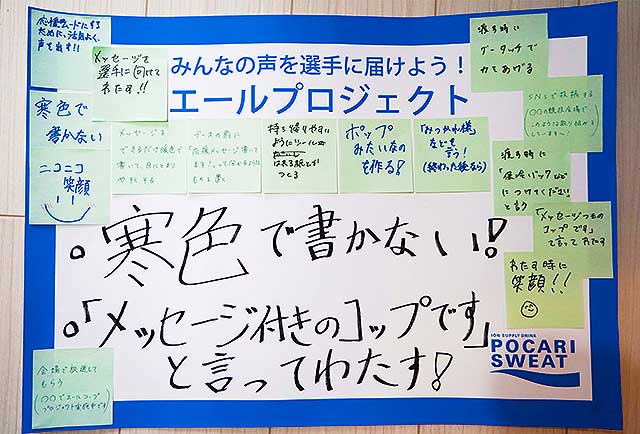 応援ムードにする
ために、活気よく、
声を出す!!
メッセージを
選手に向けて
わたす!!
みんなの声を選手に届けよう！
エールプロジェクト
渡す時に
グータッチで
力をあげる
SNSで投稿する
寒色で
書かない
ニコニコ
笑顔
メッセージを
できるだけ暖色で
書いて、目にとまり
やすくする
ブースの前に
「応援メッセージ書って
ます!」って分かるような
ものを置く
持ち帰りやすい
ようにシール
はれる紙とす!
つくる
ポップ
みたいなの
を作る!
「おつかれ様」
などを
言う!
(終わった後なら)
渡す時に
「保冷バッグなどに
につけてください」
と言う
「メッセージつきの
コップです」
て言ってわたす
わたす時に
笑顔!!
。寒色で書かない!
。「メッセージ付きのコップです」
と言ってわたす!
会場で放送して
もらう
(〇〇でエールコップ
プロジェクト実施中です)
ION SUPPLY DRINK
POCARI
SWEAT